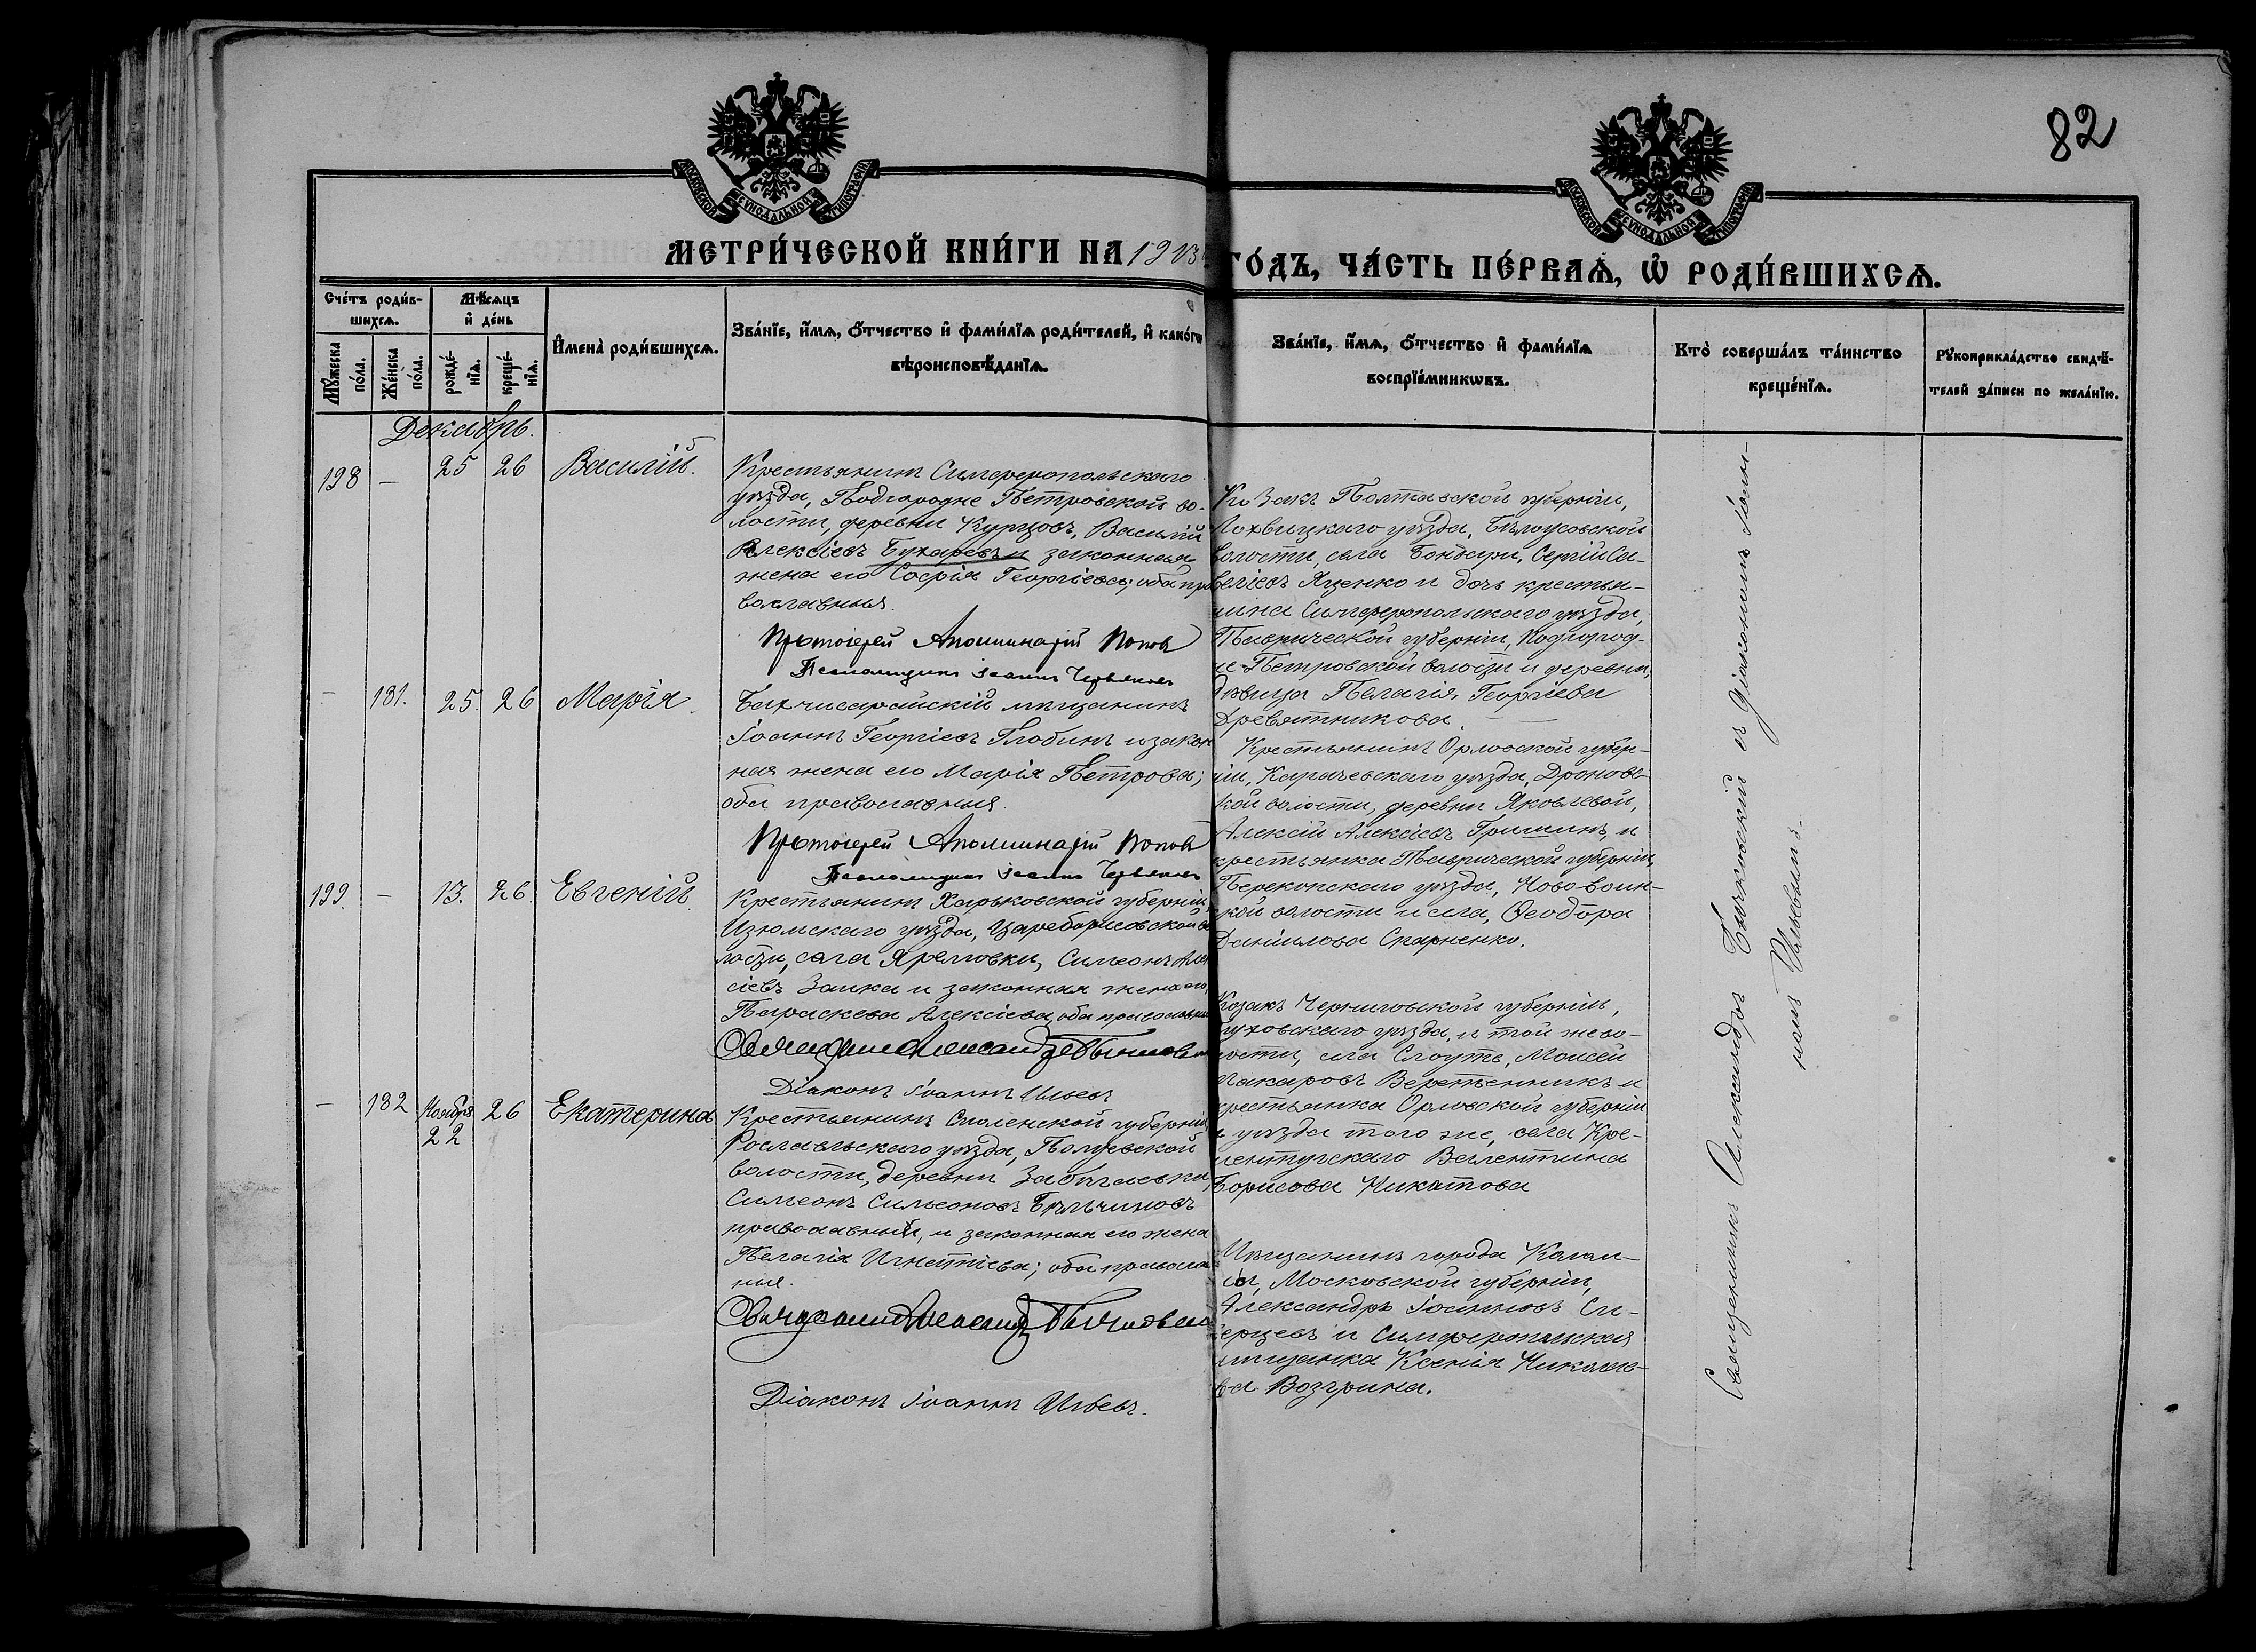 82
МОСКОВСКОЙ СѴНОДАЛЬНОЙ ТИПОГРАФІИ
МОСКОВСКОЙ СѴНОДАЛЬНОЙ ТИПОГРАФІИ
МЕТРИ́ЧЕСКОЙ КНИ́ГИ НА 1913
ГО́ДЪ, ЧА́СТЬ ПЕ́РВАѦ, Ѡ҆ РОДИ́ВШИХСѦ.
Сче́тъ роди́в-
шихсѧ.
Мѣ́сѧцъ
и҆ де́нь
Мꙋ́жеска по́ла.
Же́нска по́ла.
рожде́-
нїѧ.
креще́-
нїѧ.
И҆мена̀ роди́вшихсѧ.
Зва́нїе, и҆́мѧ, ѻ҆́тчество и҆ фами́лїѧ роди́телей, и҆ како́гѡ
вѣроисповѣ́данїѧ.
Зва́нїе, и҆́мѧ, ѻ҆́тчество и҆ фами́лїѧ
воспрїе́мникѡвъ.
Кто̀ соверша́лъ та́инство
креще́нїѧ.
Рꙋкоприкла́дство свидѣ́-
телей за́писи по жела́нїю.
Декабрь.
198 — 25 26 Василій.
Крестьянинъ Симферопольскаго
уѣзда, Подгородне Петровской во-
лости, деревни Курцовъ, Василій
Алексіевъ Бухаревъ и законная
жена его Софія Георгіева; оба пра
вославныя.
Протоіерей Аполлинарій Попов
Псаломщикъ Іоаннъ
Козакъ Полтавской губерніи,
Лохвицкаго уѣзда, Бѣлоусовской
волости, села Бондари, Сергій Са-
веліевъ Яценко и дочь крестья-
нина Симферопольскаго уѣзда,
Таврической губерніи, Подгород-
не-Петровской волости и деревни,
дѣвица Пелагія Георгіева
Древятникова.
— 181. 25. 26 Марія.
Бахчисарайскій мѣщанинъ
Іоаннъ Георгіевъ Глобинъ и закон
ная жена его Марія Петрова;
оба православныя.
Протоіерей Аполлинарій Попов
Псаломщикъ Іоаннъ
Крестьянинъ Орловской губер-
ніи, Карачевскаго уѣзда, Дроновс-
кой волости, деревни Яковлевой,
Алексій Алексіевъ Гришинъ, и
крестьянка Таврической губерніи,
Перекопскаго уѣзда, Ново-воин-
ской волости и села, Ѳеодора
Даніилова Спарненко.
199. — 13. 26. Евгеній.
Крестьянинъ Харьковской губерніи,
Изюмскаго уѣзда, Цареборисовской во
лости, села Яремовки, Симеонъ Алек
сіевъ Заика и законная жена его,
Параскева Алексіева, оба православныя
Священникъ Александръ
Діаконъ Іоаннъ Ильевъ
Козакъ Черниговской губерніи,
Глуховскаго уѣзда, и той же во-
лости, села Слоутъ, Моисей
Макаровъ Веретенникъ и
крестьянка Орловской губерніи
и уѣзда того же, села Кре-
ментугскаго Валентина
Борисова Никитова
— 182 Ноября 22 26 Екатерина
Крестьянинъ Смоленской губерніи,
Рославльскаго уѣзда,
волости, деревни
Симеонъ Симеоновъ Бѣльчиновъ
православный, и законная его жена
Пелагія Игнатіева; оба правосла
ныя.
Священникъ Александръ
Діаконъ Іоаннъ Ильевъ.
Мѣщанинъ города Колом-
ны, Московской губерніи,
Александръ Іоанновъ Си-
верцевъ и Симферопольская
мѣщанка Ксенія Николае-
ва Возгрина.
Священникъ Александръ Бычковскій съ діакономъ Іоан-
номъ Ильевымъ.